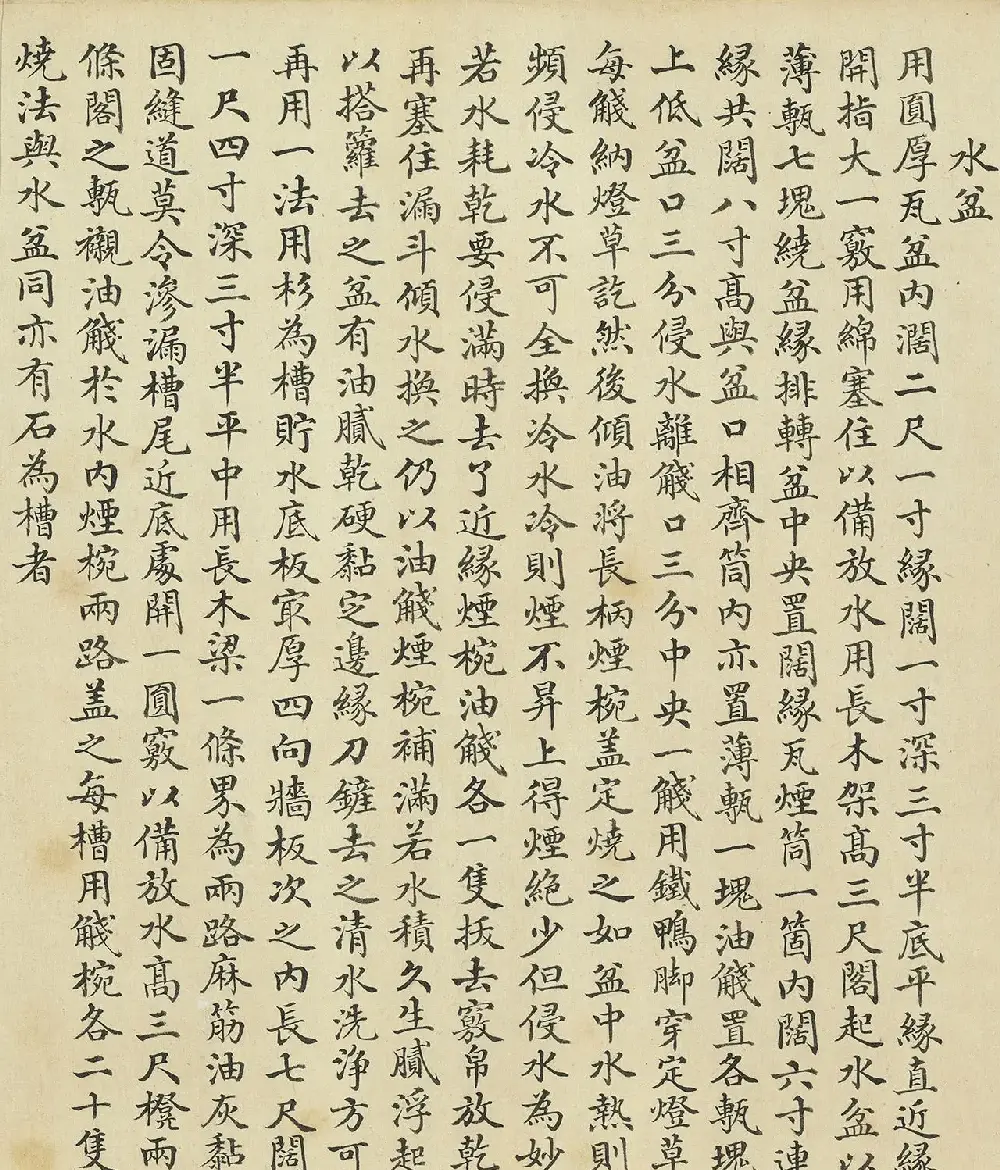 水盆
用圓厚瓦盆内濶二尺一寸緣闊一寸深三寸半底平緣直近緣
開指大一竅用綿塞住以備放水用長木架髙三尺閣起水盆以
薄甎七塊繞盆緣排轉盆中央置闊緣瓦煙筒一箇内闊六寸連
緣共闊八寸髙與盆口相齊筒内亦置薄甎一塊油觮置各甎塊
上低盆口三分侵水離觮口三分中央一觮用鐵鴨脚穿定燈草
每觮納燈草訖然後傾油將長柄煙椀盖定燒之如盆中水熱則
頻侵冷水不可全換冷水冷則煙不昇上得煙絶少但侵水為妙
若水耗乾要侵滿時去了近緣煙椀油觮各一隻拔去竅帛放乾
再塞住漏斗傾水換之仍以油觮煙椀補滿若水積久生膩浮起
以搭籮去之盆有油膩乾硬黏定邊緣刀鏟去之清水洗浄方可
再用一法用杉為槽貯水底板㝡厚四向牆板次之内長七尺闊
一尺四寸深三寸半平中用長木梁一條界為兩路麻筋油灰黏
固縫道莫令滲漏槽尾近底處開一圓竅以備放水髙三尺櫈兩
條閣之甎襯油觮於水内煙椀兩路盖之每槽用觮椀各二十隻
燒法與水盆同亦有石為槽者